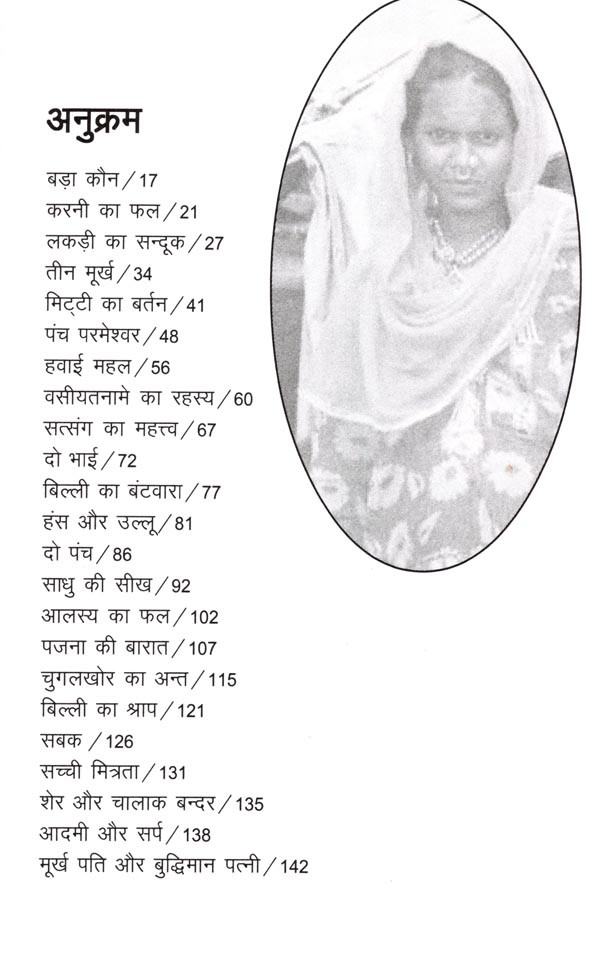 अनुक्रम
बड़ा कौन/17
करनी का फल/21
लकड़ी का सन्दूक/27
तीन मूर्ख/34
मिट्टी का बर्तन/41
पंच परमेश्वर/48
हवाई महल/56
वसीयतनामे का रहस्य/60
सत्संग का महत्त्व/67
दो भाई/72
बिल्ली का बंटवारा/77
हंस और उल्लू/81
दो पंच/86
साधु की सीख/92
आलस्य का फल/102
पजना की बारात/107
चुगलखोर का अन्त/115
बिल्ली का श्राप/121
सबक /126
सच्ची मित्रता/131
शेर और चालाक बन्दर/135
आदमी और सर्प/138
मूर्ख पति और बुद्धिमान पत्नी/142